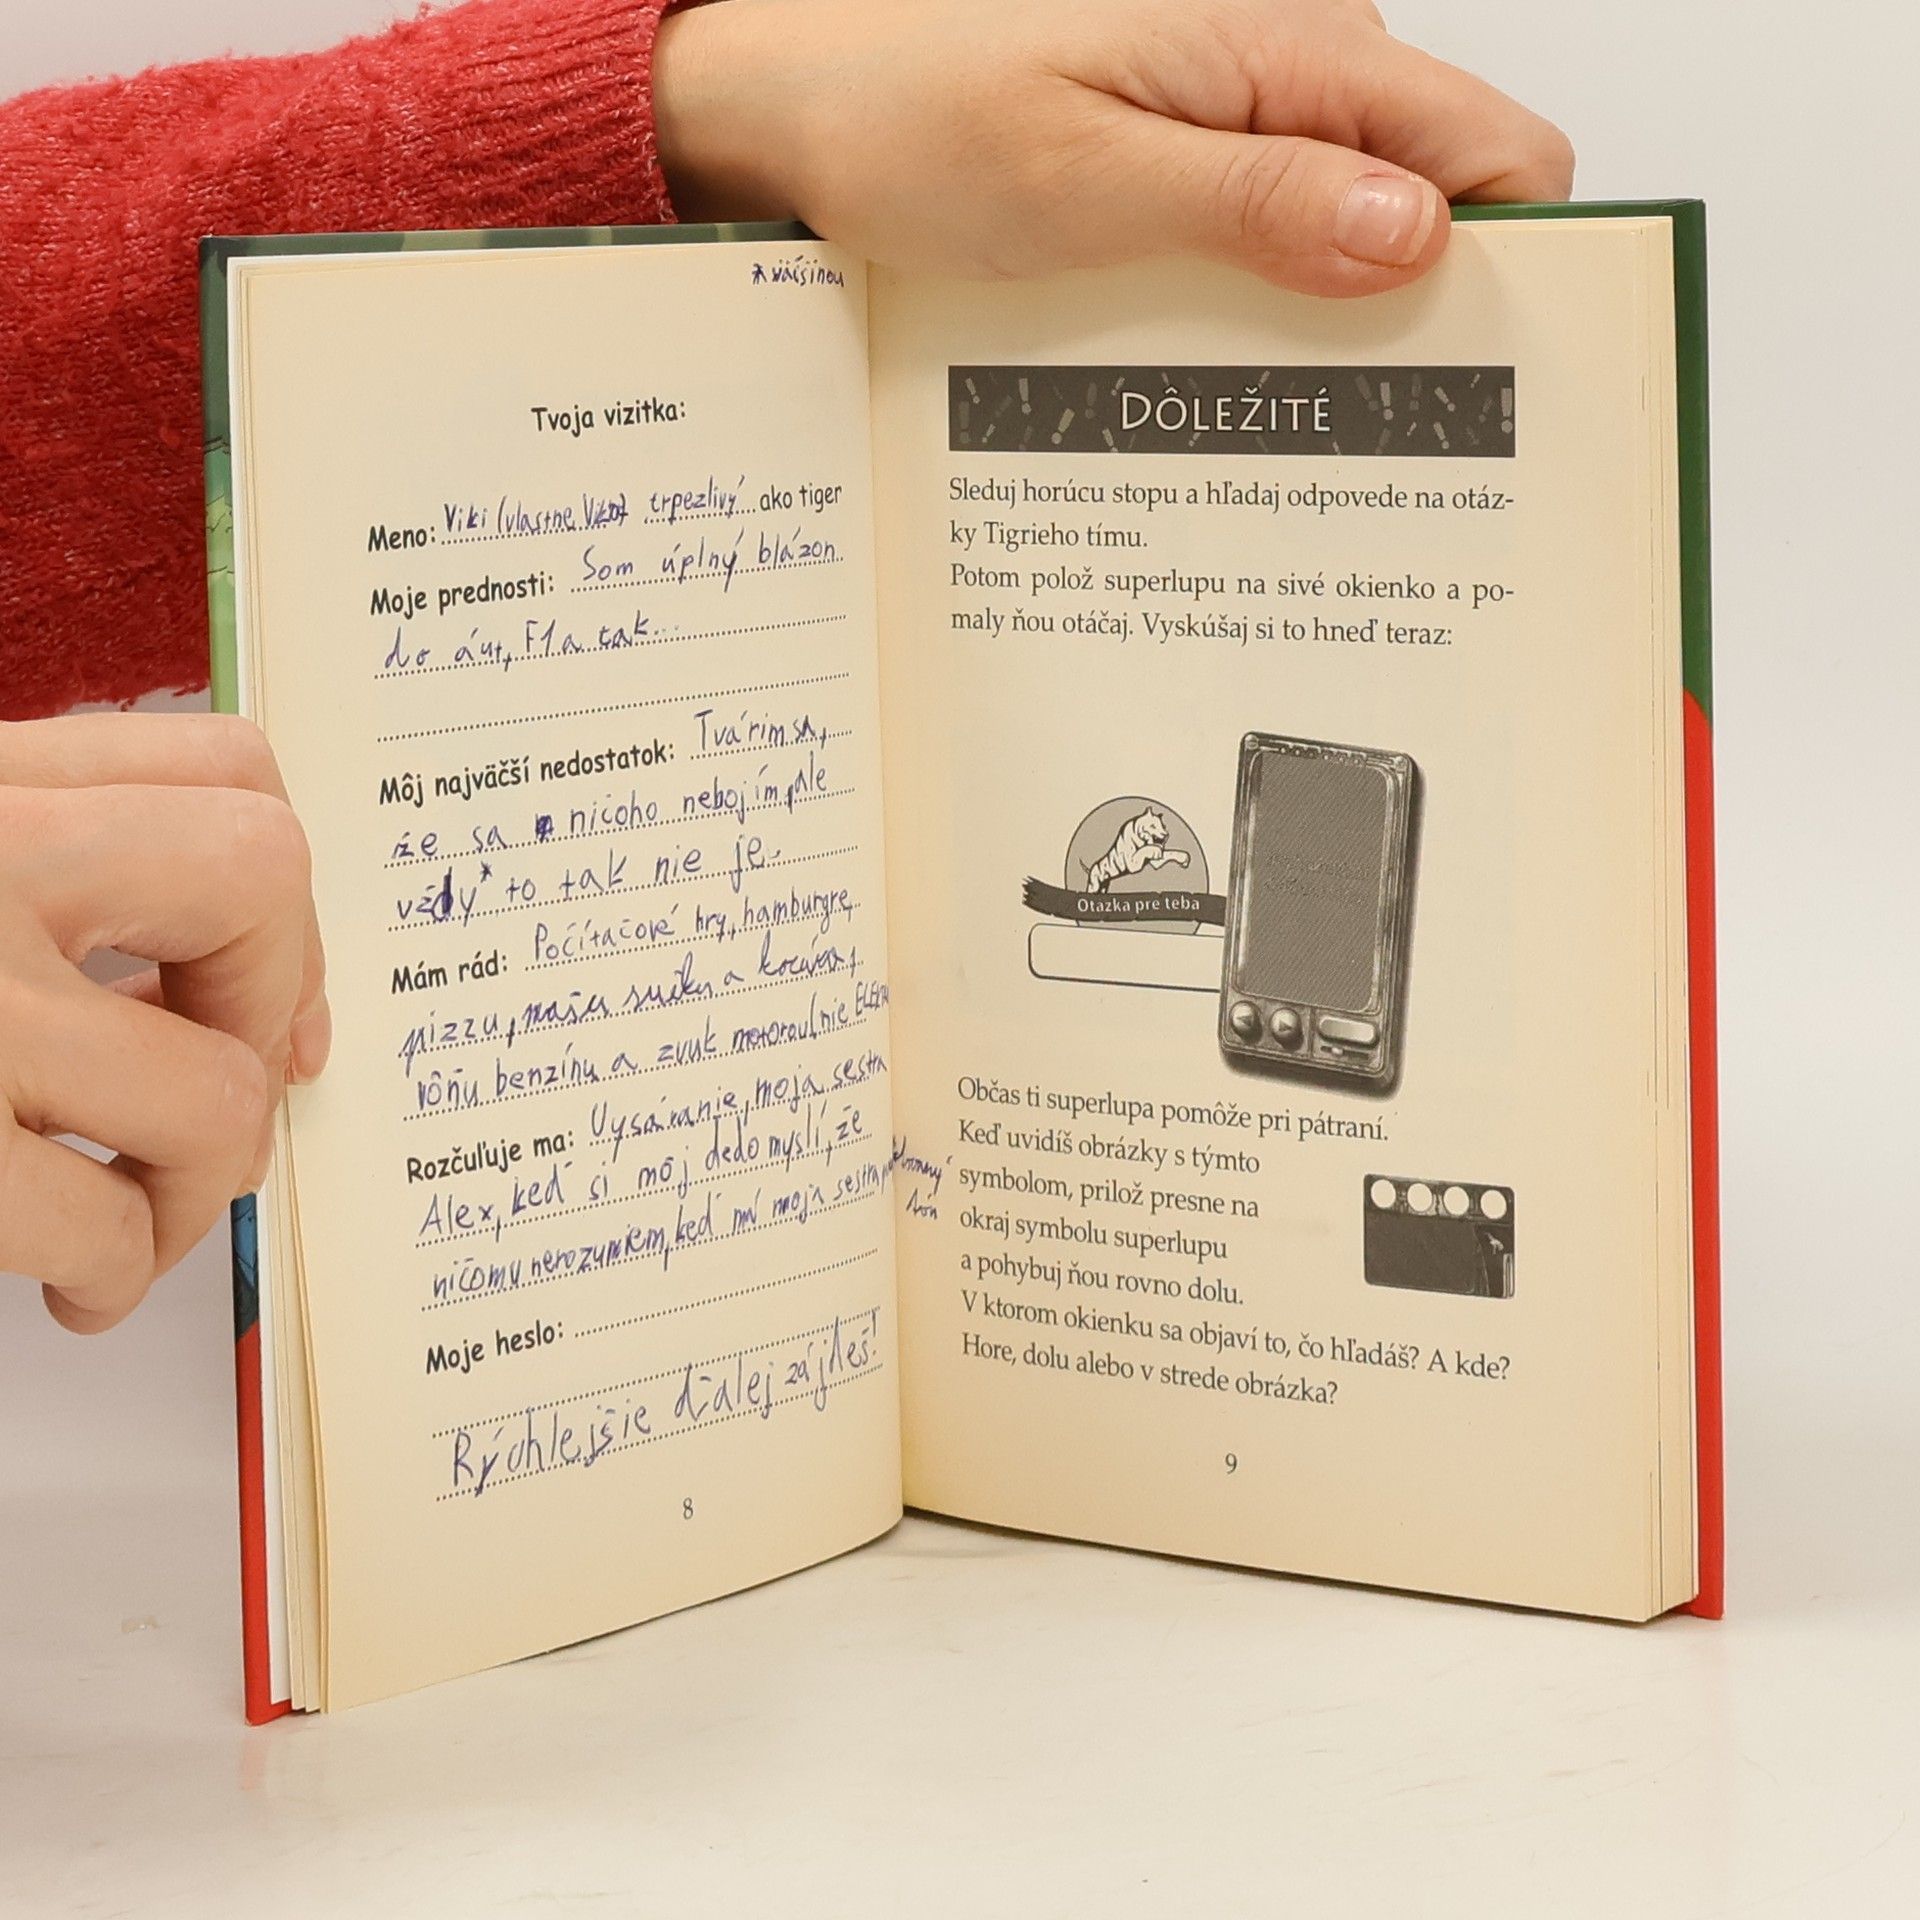 * väčšinou
Tvoja vizitka:
Meno: Viki (vlastne Viktor) trpezlivý ako tiger
Moje prednosti: Som úplný blázon
do áut, F1 a tak...
Môj najväčší nedostatok: Tvárim sa,
že sa ničoho nebojím, ale
vždy* to tak nie je.
Mám rád: Počítačové hry, hamburgre,
pizzu, našu sučku a kocúra,
vôňu benzínu a zvuk motorou, nie
Rozčuľuje ma: Vysávanie, moja sestra
Alex, keď si môj dedo myslí, že
ničomu nerozumiem, keď mi moja sestra
Moje heslo:
Rýchlejšie ďalej zájdeš!
8
DÔLEŽITÉ
Sleduj horúcu stopu a hľadaj odpovede na otáz-
ky Tigrieho tímu.
Potom polož superlupu na sivé okienko a po-
maly ňou otáčaj. Vyskúšaj si to hneď teraz:
Otazka pre teba
Občas ti superlupa pomôže pri pátraní.
Keď uvidíš obrázky s týmto
symbolom, prilož presne na
okraj symbolu superlupu
a pohybuj ňou rovno dolu.
V ktorom okienku sa objaví to, čo hľadáš? A kde?
Hore, dolu alebo v strede obrázka?
9